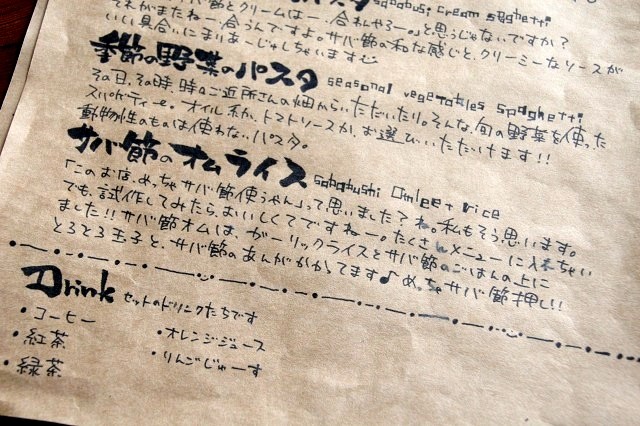 サバ節とクリームは…合わんやろー。」と思うじゃないですか?
それがまたねー、合うんですよ。サバ節の和な感じと、クリーミーなソースが
いい具合にまりあーじゅしちゃいます
季節の野菜のパスタ seasonal vegetables spaghetti
その日、その時 時のご近所さんの畑から、いただいたり。そんな、旬の野菜を使った
スパゲティーで。オイル系か、トマトソースか、お選びいただけます!!
動物性のものは使わないパスタ。
サバ節のオムライス sababushi omlee+ rice
「このお店、めっちゃサバ節使うやん」って思いました?ね。私もそう思います。
でも、試作してみたら、おいしくてですねー。たくさんメニューに入れちゃい
ました!!サバ節オムは、ガーリックライスとサバ節のごはんの上に
とろとろ玉子と、サバ節のあんがかかってます♪めっちゃサバ節押し!!
Drink セットのドリンクたちです
・コーヒー
・紅茶
・緑茶
・オレンジジュース
・りんごじゅーす